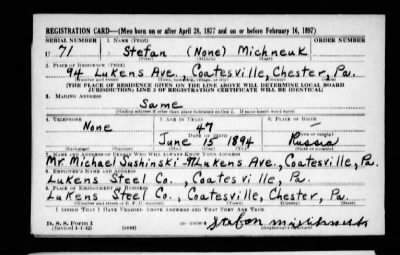 REGISTRATION CARD—(Men born on or after April 28, 1877 and on or before February 16, 1897)
SERIAL NUMBER 1. NAME (Print) ORDER NUMBER
U 71 Stefan (None) Michneuk
(First) (Middle) (Last)
2. PLACE OF RESIDENCE (Print)
94 Lukens Ave., Coatesville, Chester, Pa.
[THE PLACE OF RESIDENCE GIVEN ON THE LINE ABOVE WILL DETERMINE LOCAL BOARD
JURISDICTION; LINE 2 OF REGISTRATION CERTIFICATE WILL BE IDENTICAL]
3. MAILING ADDRESS
Same
[Mailing address if other than place indicated on line 2. If same insert word same]
4. TELEPHONE 5. AGE IN YEARS 6. PLACE OF BIRTH
None 47
DATE OF BIRTH
June 15 1894 Russia
7. NAME AND ADDRESS OF PERSON WHO WILL ALWAYS KNOW YOUR ADDRESS
Mr. Michael Sushinski Lukens Ave., Coatesville, Pa.
8. EMPLOYER'S NAME AND ADDRESS
Lukens Steel Co., Coatesville, Pa
9. PLACE OF EMPLOYMENT OR BUSINESS
Lukens Steel Co., Coatesville, Chester, Pa.
I AFFIRM THAT I HAVE VERIFIED ABOVE ANSWERS AND THAT THEY ARE TRUE.
D. S. S. Form 1
(Revised 4-1-42) (over)